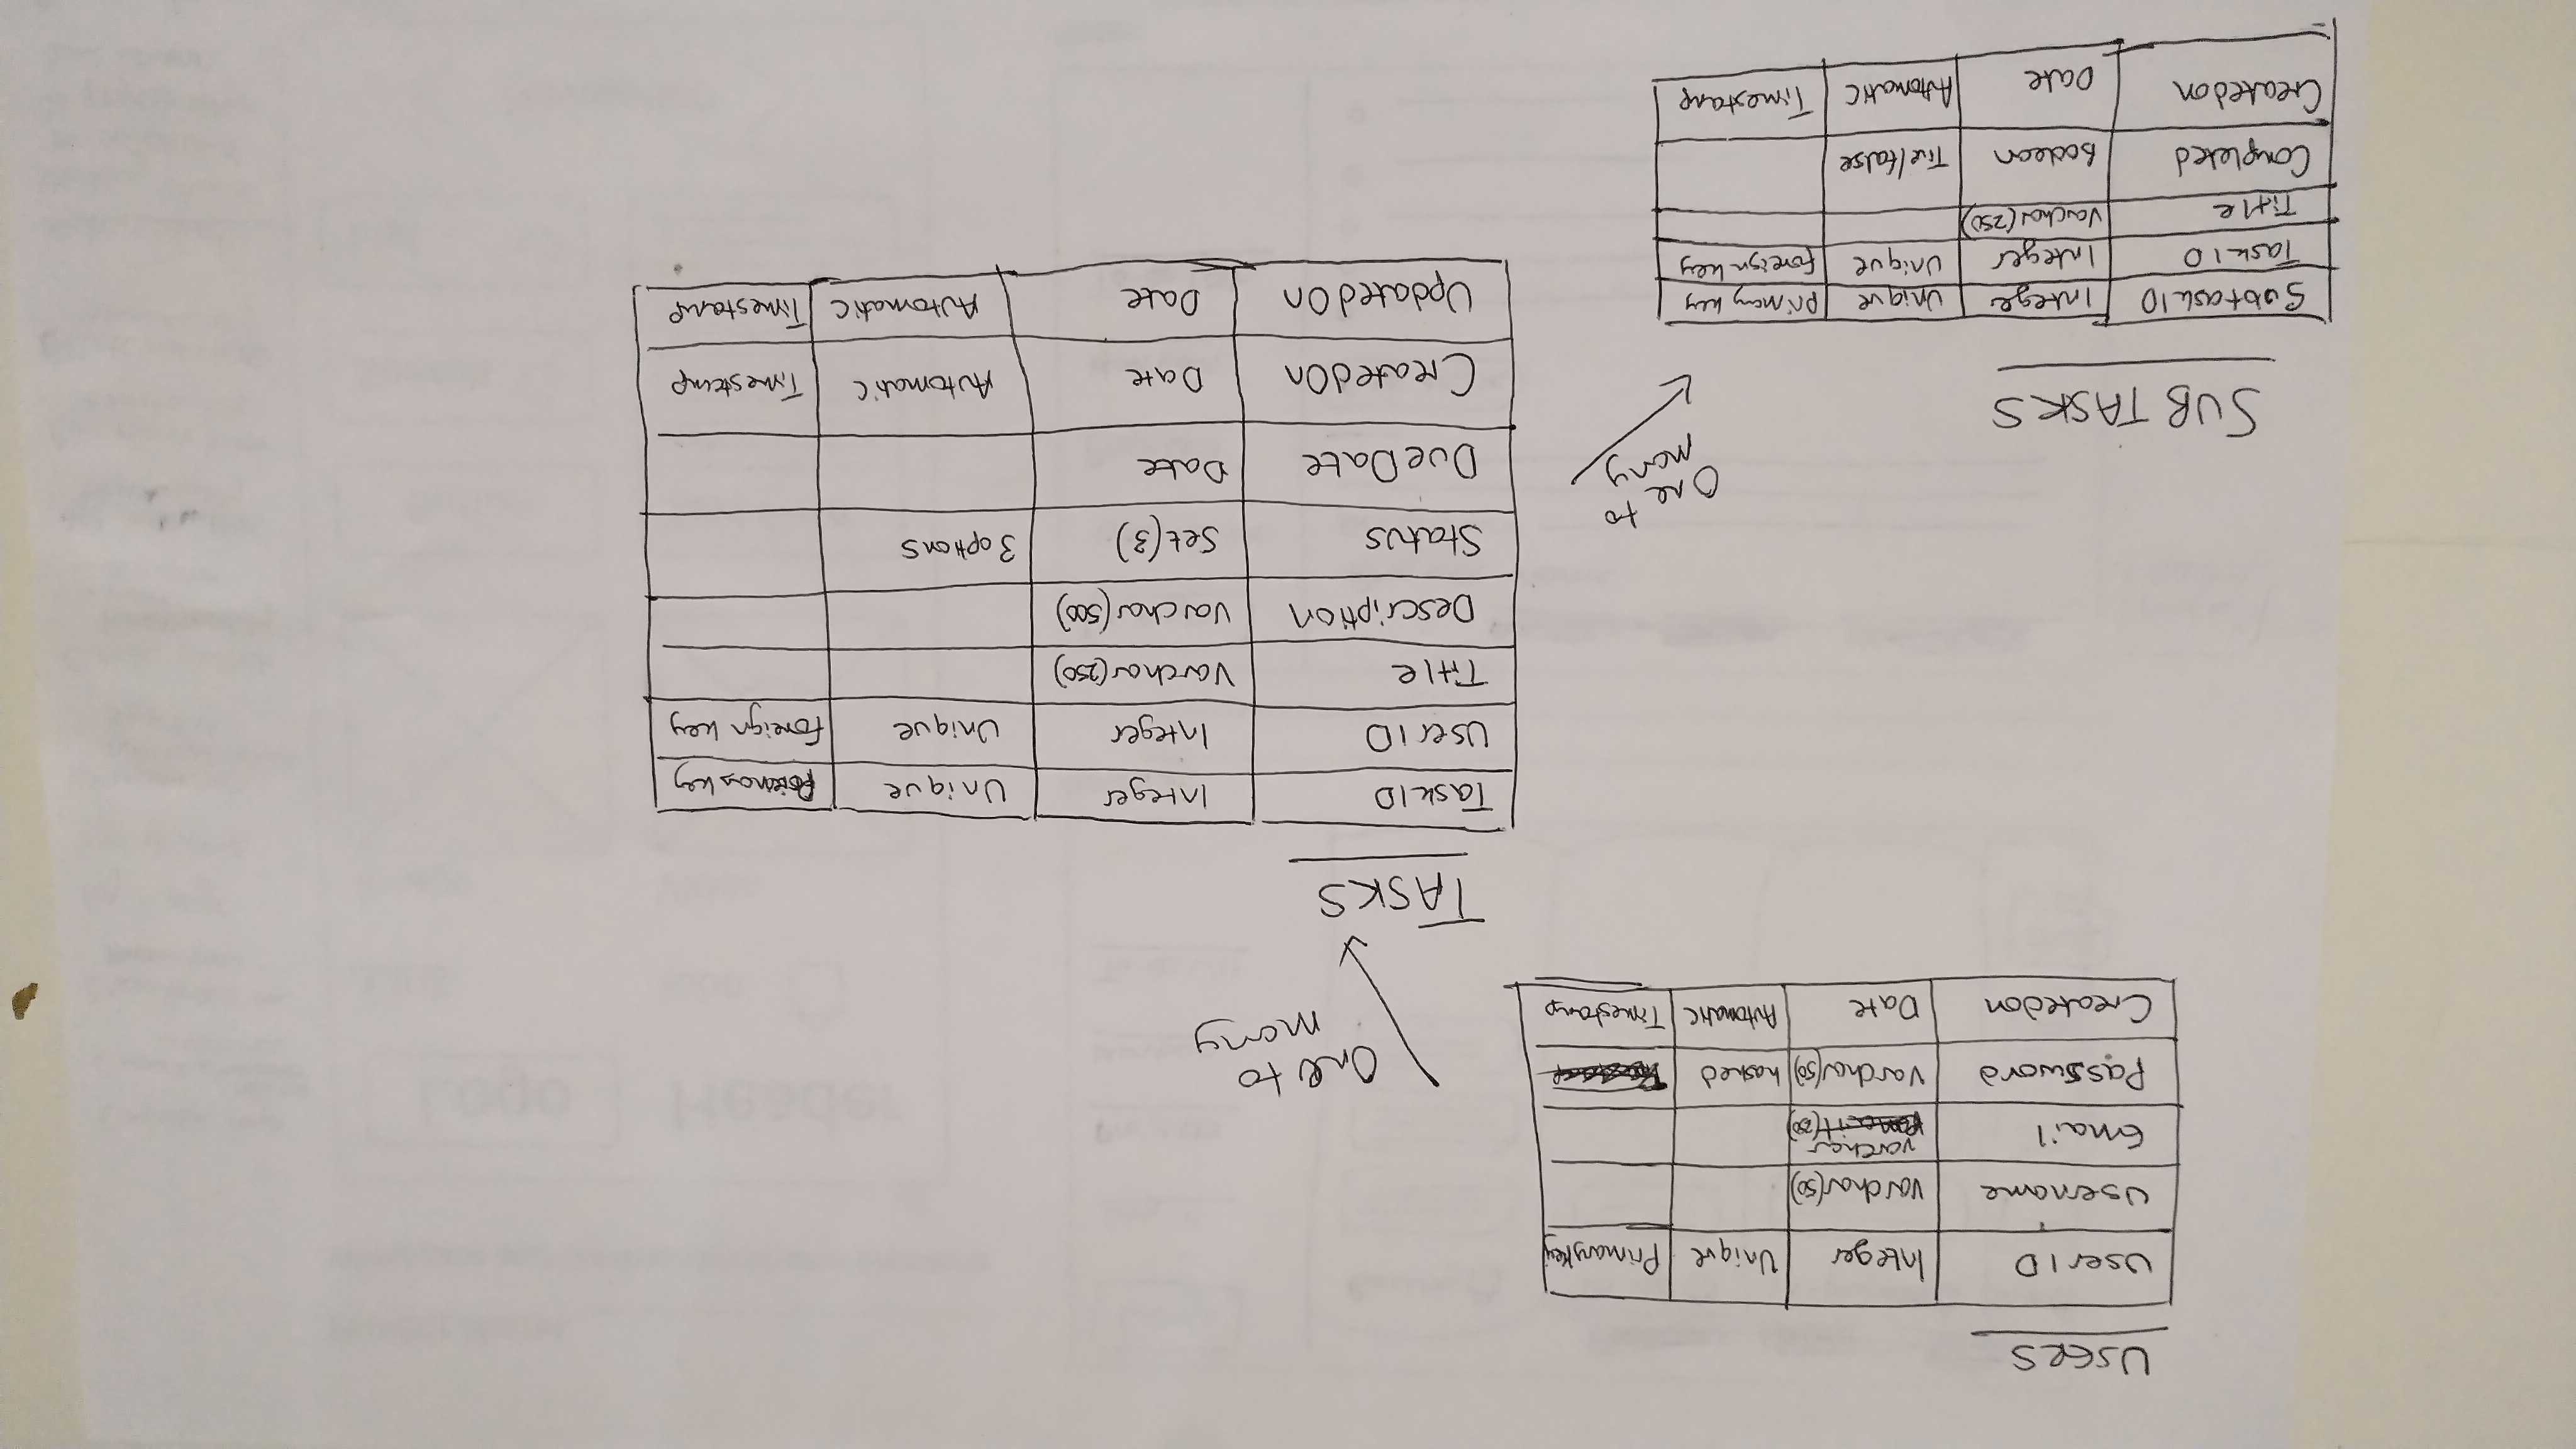 USERS
UserID Integer Unique Primary Key
Username Varchar(50)
Email varchar (250)
Password Varchar(50) hashed
Createdon Date Automatic Timestamp
One to
many
TASKS
TaskID Integer Unique Primary key
UserID Integer Unique foreign key
Title Varchar(250)
Description Varchar(500)
Status Set(3) 3 options
DueDate Date
CreatedOn Date Automatic Timestamp
UpdatedOn Date Automatic Timestamp
One to
many
SUB TASKS
SubtaskID Integer Unique Primary key
TaskID Integer Unique foreign key
Title Varchar(250)
Completed Boolean True/false
Createdon Date Automatic Timestamp